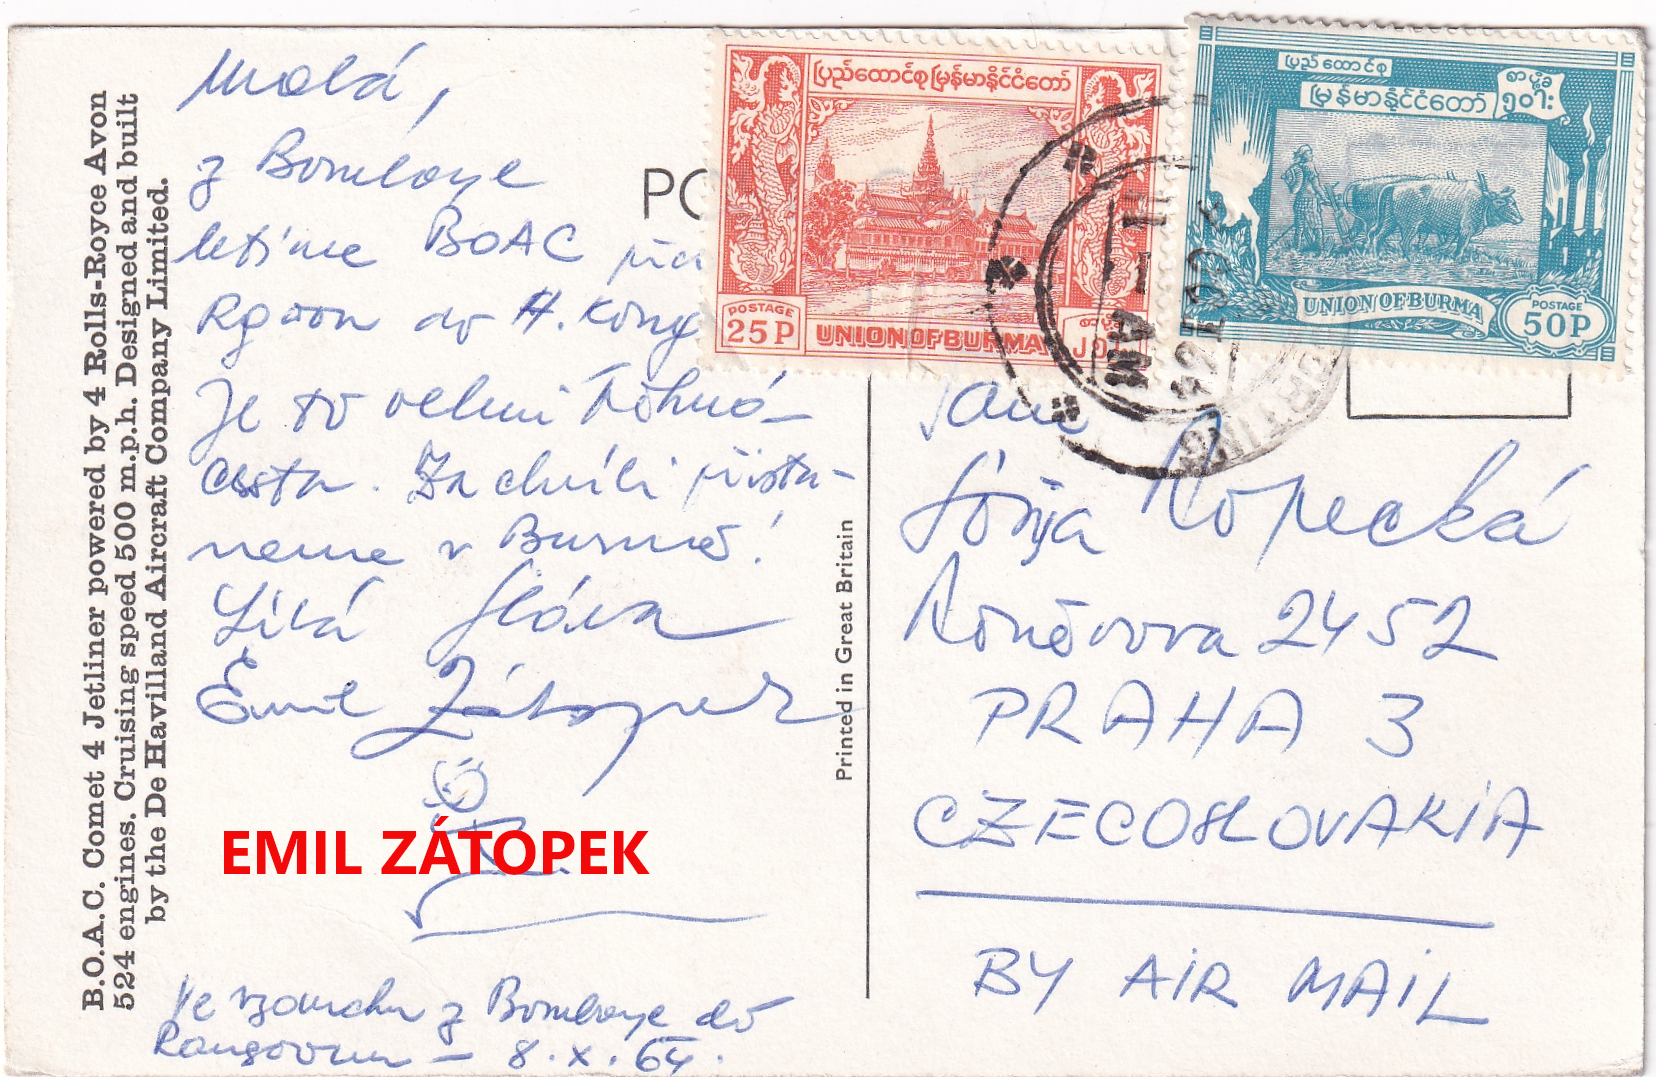 B.O.A.C. Comet 4 Jetliner powered by 4 Rolls-Royce Avon
524 engines. Cruising speed 500 m.p.h. Designed and built
by the De Havilland Aircraft Company Limited.
z Bombaye
letíme BOAC
Rgoon do H. Kong
Je to velmi
cesta. Za chvíli přista-
neme v Burmě!
Emil Zátopek
EMIL ZÁTOPEK
Ve vzduchu z Bombaye do
Rangoonu – 8. X. 64.
Printed in Great Britain
PO
ပြည်ထောင်စုမြန်မာနိုင်ငံတော်
POSTAGE
25P
UNION OF BURMA
ပြည်ထောင်စု
မြန်မာနိုင်ငံတော်
UNION OF BURMA
POSTAGE
50P
AM
Sonja Kopecká
Koněvova 2452
PRAHA 3
CZECOSLOVAKIA
BY AIR MAIL